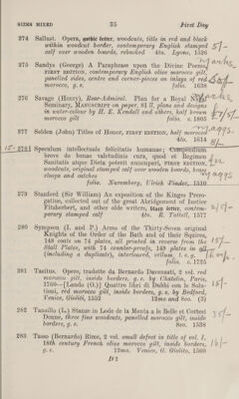 SIZES MIXED 35 First Day
274 Sallust. Opera, gothic letter, woodcuts, title in red and black
within woodcut border, contemporary English stamped
calf over wooden boards, rebacked 4to. Lyons, 1526
5/-
275 Sandys (George) A Paraphrase upon the Divine Poems,
FIRST EDITION, contemporary English olive morocco gilt,
panelled sides, centre and corner-pieces on inlays of red
morocco, g. e. folio. 1638
276 Savage (Henry), Rear-Admiral. Plan for a Royal Naval
Seminary, MANUSCRIPT on paper, 81 ll, plans and designs
in water-colour by H. E. Kendall and others, half brown
morocco gilt folio. c. 1805
277 Selden (John) Titles of Honor, FIRST EDITION, half morocco
4to. 1614
Maggs.
8/-
278 Speculum intellectuale felicitatis humanae; Compendium
breve de bonae valetudinis cura, quod et Regimen
Sanitatis atque Dieta potest nuncupari, FIRST EDITION,
woodcuts, original stamped calf over wooden boards, brass
clasps and catches
folio. Nuremberg, Ulrich Pinder, 1510
Maggs
279 Stanford (Sir William) An exposition of the Kinges Prero-
gative, collected out of the great Abridgement of Justice
Fitzherbert, and other olde writers, black letter, contem-
porary stamped calf 4to. R. Tottell, 1577
280 Sympson (I. and P.) Arms of the Thirty-Seven original
Knights of the Order of the Bath and of their Squires,
148 coats on 74 plates, all printed in reverse from the
Stall Plates, with 74 counter-proofs, 148 plates in all
(including a duplicate), interleaved, vellum, t. e. g.
folio. c. 1725
15/-
281 Tacitus. Opera, tradotte da Bernardo Davanzati, 2 vol. red
morocco gilt, inside borders, g. e. by Chatelin, Paris,
1760—[Lando (O.)] Quattro libri de Dubbi con le Solu-
tioni, red morocco gilt, inside borders, g. e. by Bedford,
Venice, Giolito, 1552 12mo and 8vo. (3)
15/-
282 Tansillo (L.) Stanze in Lode de la Menta a le Belle et Cortesi
Donne, three fine woodcuts, panelled morocco gilt, inside
borders, g. e. 8vo. 1538
35/-
283 Tasso (Bernardo) Rime, 2 vol. small defect in title of vol. I,
18th century French olive morocco gilt, inside borders,
g. e. 12mo. Venice, G. Giolito, 1560
16/-
D 2